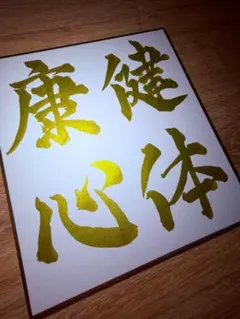 健体
康心